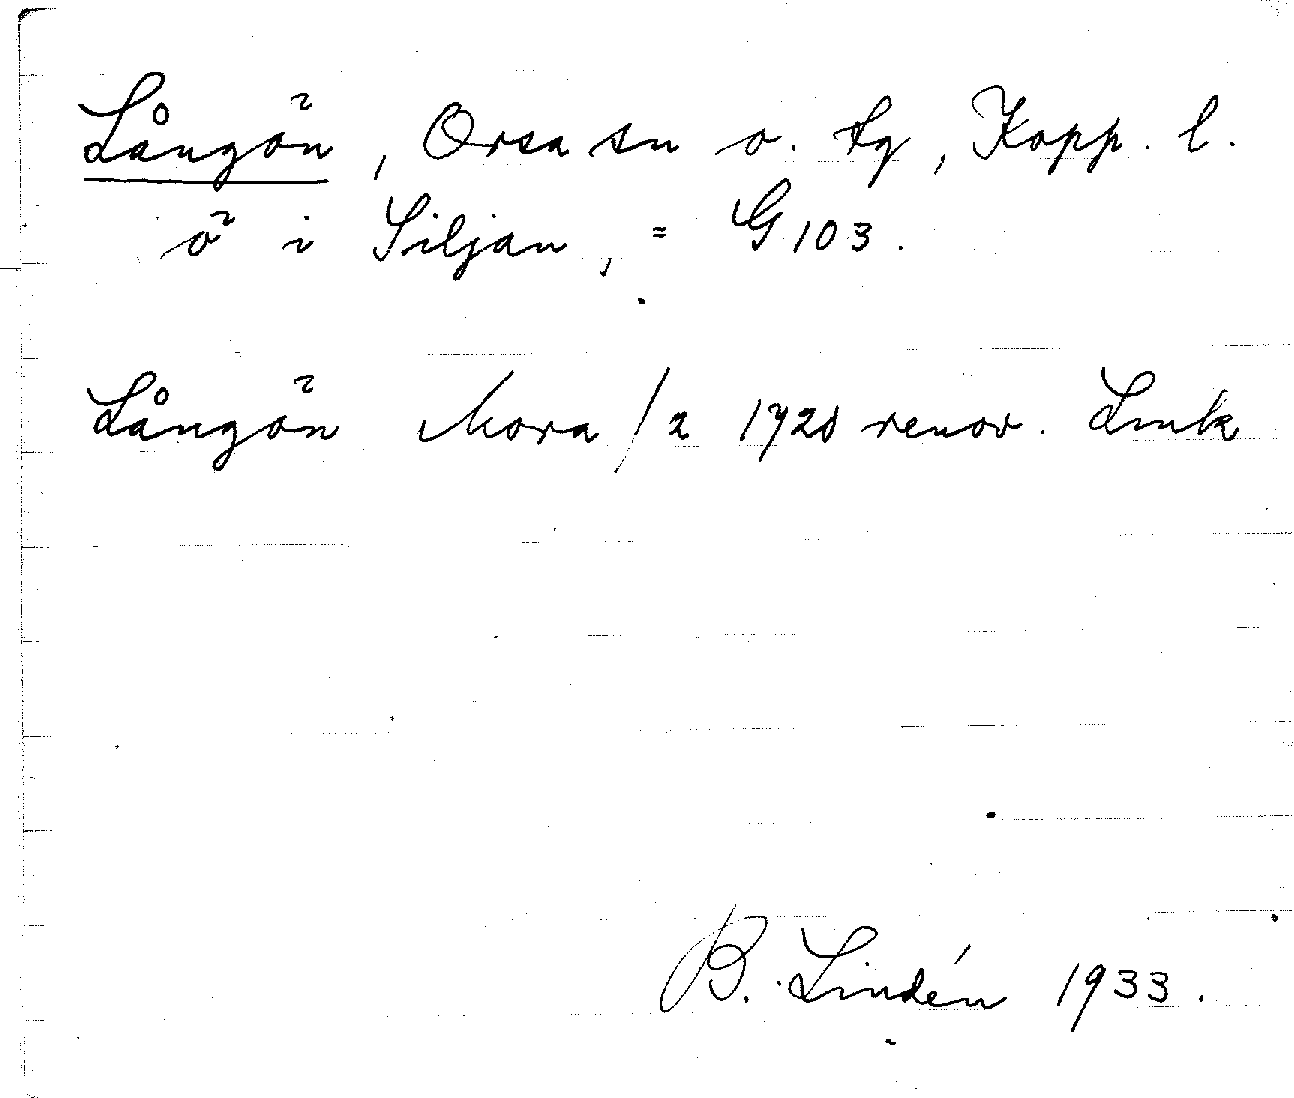 Långön, Orsa sn o. tg, Kopp. l.
ö i Siljan, = G 103.
Långön Mora /2 1928 renov. Lmk
B. Lindén 1933.